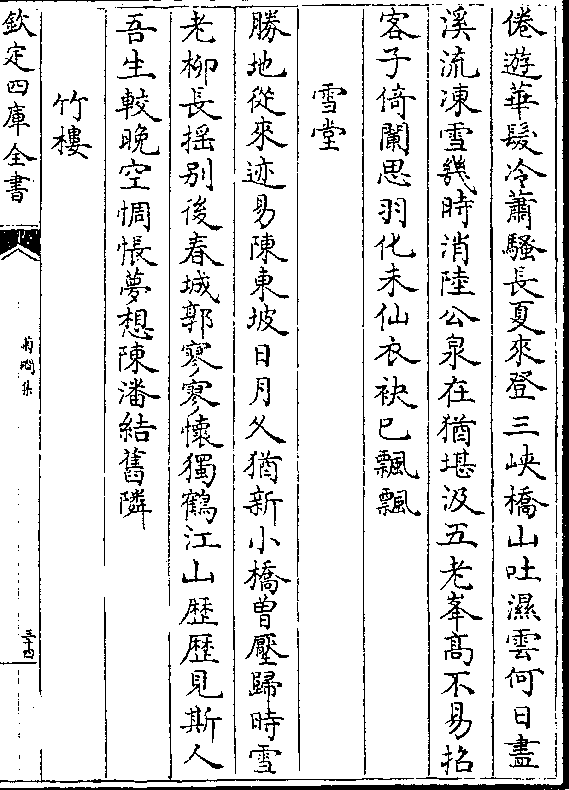 倦遊華髮冷蕭騷長夏來登三峽橋山吐濕雲何日盡
溪流凍雪幾時消陸公泉在猶堪汲五老峯髙不易招
客子倚闌思羽化未仙衣袂已飄飄
雪堂
勝地從來迹易陳東坡日月久猶新小橋曽壓歸時雪
老柳長揺别後春城郭寥寥懷獨鶴江山歴歴見斯人
吾生較晩空惆悵夢想陳潘結舊隣
竹樓
欽定四庫全書
菊磵集
三十四